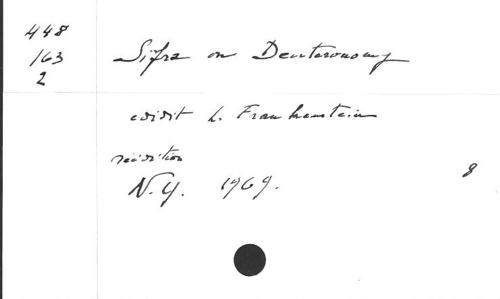 448
163
2
Sifre on Deuteronomy
edidit L. Frankenstein
réédition
N.Y. 1969.
8